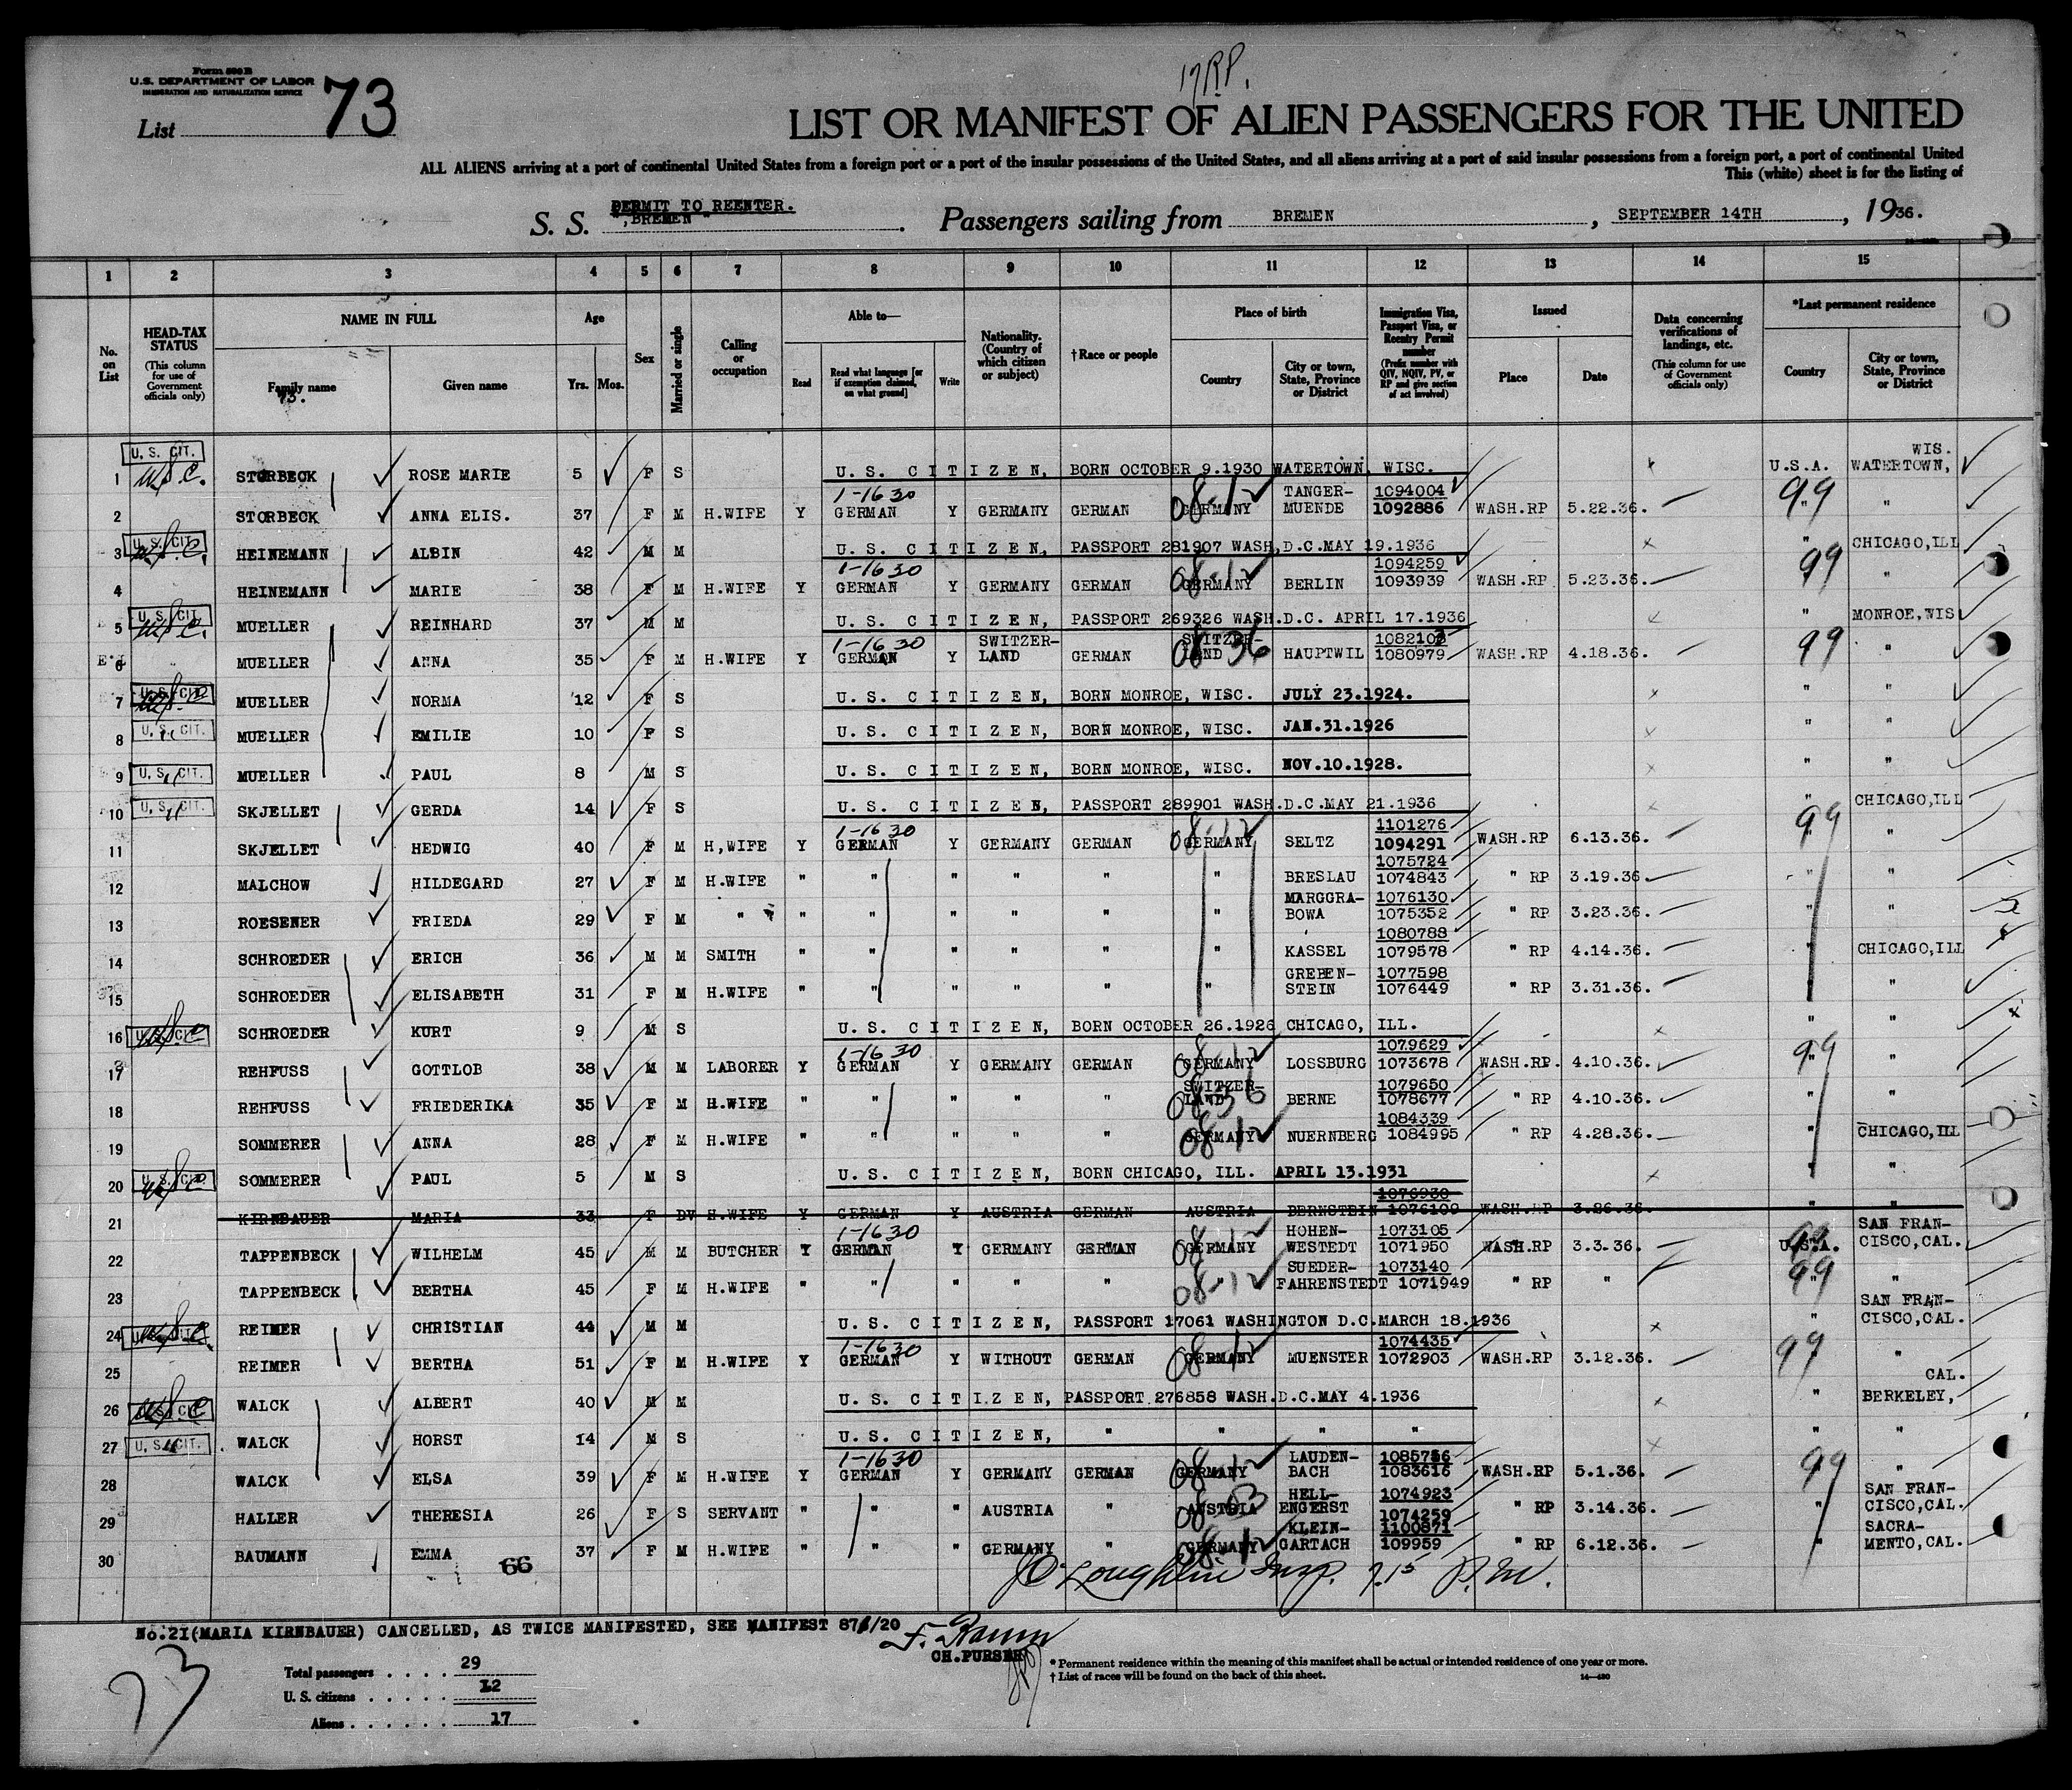 17 RP.
Form 500 B
U.S. DEPARTMENT OF LABOR
IMMIGRATION AND NATURALIZATION SERVICE
List 73
LIST OR MANIFEST OF ALIEN PASSENGERS FOR THE UNITED
ALL ALIENS arriving at a port of continental United States from a foreign port or a port of the insular possessions of the United States, and all aliens arriving at a port of said insular possessions from a foreign port, a port of continental United
This (white) sheet is for the listing of
PERMIT TO REENTER.
S. S. "BREMEN". Passengers sailing from BREMEN, SEPTEMBER 14TH, 1936.
1 2 3 4 5 6 7 8 9 10 11 12 13 14 15
No. on List
HEAD-TAX STATUS (This column for use of Government officials only)
NAME IN FULL Family name Given name
73.
Age Yrs. Mos.
Sex
Married or single
Calling or occupation
Able to— Read Read what language [or if exemption claimed, on what ground] Write
Nationality. (Country of which citizen or subject)
†Race or people
Place of birth Country City or town, State, Province or District
Immigration Visa, Passport Visa, or Reentry Permit number (Prefix number with QIV, NQIV, PV, or RP and give section of act involved)
Issued Place Date
Data concerning verifications of landings, etc. (This column for use of Government officials only)
*Last permanent residence Country City or town, State, Province or District
1 U.S. CIT. USC. STORBECK ROSE MARIE 5 F S U.S. CITIZEN, BORN OCTOBER 9.1930 WATERTOWN, WISC. U.S.A. WIS. WATERTOWN,
2 STORBECK ANNA ELIS. 37 F M H.WIFE Y 1-16 30 GERMAN Y GERMANY GERMAN 08-12 GERMANY TANGER-MUENDE 1094004 1092886 WASH.RP 5.22.36. 99 " "
3 U.S. CIT. USC. HEINEMANN ALBIN 42 M M U.S. CITIZEN, PASSPORT 281907 WASH,D.C.MAY 19.1936 " CHICAGO,ILL
4 HEINEMANN MARIE 38 F M H.WIFE Y 1-16 30 GERMAN Y GERMANY GERMAN 08-12 GERMANY BERLIN 1094259 1093939 WASH.RP 5.23.36. 99 "
5 U.S. CIT. USC. MUELLER REINHARD 37 M M U.S. CITIZEN, PASSPORT 269326 WASH.D.C. APRIL 17.1936 " MONROE,WIS.
6 MUELLER ANNA 35 F M H.WIFE Y 1-16 30 GERMAN Y SWITZER-LAND GERMAN 08 36 SWITZER-LAND HAUPTWIL 1082103 1080979 WASH.RP 4.18.36. 99 "
7 U.S. CIT. USC MUELLER NORMA 12 F S U.S. CITIZEN, BORN MONROE, WISC. JULY 23.1924. " "
8 U.S. CIT. " MUELLER EMILIE 10 F S U.S. CITIZEN, BORN MONROE, WISC. JAN.31.1926 " "
9 U.S. CIT. " MUELLER PAUL 8 M S U.S. CITIZEN, BORN MONROE, WISC. NOV.10.1928. " "
10 U.S. CIT. " SKJELLET GERDA 14 F S U.S. CITIZEN, PASSPORT 289901 WASH.D.C.MAY 21.1936 " CHICAGO,ILL
11 SKJELLET HEDWIG 40 F M H,WIFE Y 1-16 30 GERMAN Y GERMANY GERMAN 08-12 GERMANY SELTZ 1101276 1094291 WASH.RP 6.13.36. 99 "
12 MALCHOW HILDEGARD 27 F M H.WIFE " " " " " " BRESLAU 1075724 1074843 " RP 3.19.36. " "
13 ROESENER FRIEDA 29 F M " " " " " " " MARGGRA-BOWA 1076130 1075352 " RP 3.23.36. " "
14 SCHROEDER ERICH 36 M M SMITH " " " " " " KASSEL 1080788 1079578 " RP 4.14.36. " CHICAGO,ILL
15 SCHROEDER ELISABETH 31 F M H.WIFE " " " " " " GREBEN-STEIN 1077598 1076449 " RP 3.31.36. " "
16 U.S. CIT. USC SCHROEDER KURT 9 M S U.S. CITIZEN, BORN OCTOBER 26.1926 CHICAGO, ILL. " "
17 REHFUSS GOTTLOB 38 M M LABORER Y 1-16 30 GERMAN Y GERMANY GERMAN 08-12 GERMANY LOSSBURG 1079629 1073678 WASH.RP. 4.10.36. 99 " "
18 REHFUSS FRIEDERIKA 35 F M H.WIFE " " " " " 08 36 SWITZER-LAND BERNE 1079650 1078677 " RP 4.10.36. " "
19 SOMMERER ANNA 28 F M H.WIFE " " " " " 08-12 GERMANY NUERNBERG 1084339 1084995 " RP 4.28.36. " CHICAGO,ILL
20 U.S. CIT. USC SOMMERER PAUL 5 M S U.S. CITIZEN, BORN CHICAGO, ILL. APRIL 13.1931 " "
21 KIRNBAUER MARIA 33 F DV H.WIFE Y GERMAN Y AUSTRIA GERMAN AUSTRIA BERNSTEIN 1076930 1076109 WASH.RP 3.26.36. " "
22 TAPPENBECK WILHELM 45 M M BUTCHER Y 1-16 30 GERMAN Y GERMANY GERMAN 08-12 GERMANY HOHEN-WESTEDT 1073105 1071950 WASH.RP 3.3.36. 99 U.S.A. SAN FRAN-CISCO,CAL.
23 TAPPENBECK BERTHA 45 F M H.WIFE " " " " " 08-12 " SUEDER-FAHRENSTEDT 1073140 1071949 " RP " 99 " "
24 U.S. CIT. USC. REIMER CHRISTIAN 44 M M U.S. CITIZEN, PASSPORT 17061 WASHINGTON D.C.MARCH 18.1936 " SAN FRAN-CISCO,CAL.
25 REIMER BERTHA 51 F M H.WIFE Y 1-16 30 GERMAN Y WITHOUT GERMAN 08-12 GERMANY MUENSTER 1074435 1072903 WASH.RP 3.12.36. 99 "
26 U.S. CIT. USC WALCK ALBERT 40 M M U.S. CITIZEN, PASSPORT 276858 WASH.D.C.MAY 4.1936 " CAL. BERKELEY,
27 U.S. CIT. " WALCK HORST 14 M S U.S. CITIZEN, " " " " " "
28 WALCK ELSA 39 F M H.WIFE Y 1-16 30 GERMAN Y GERMANY GERMAN 08-12 GERMANY LAUDEN-BACH 1085756 1083616 WASH.RP 5.1.36. 99 "
29 HALLER THERESIA 26 F S SERVANT " " " AUSTRIA " 08 03 AUSTRIA HELL-ENGERST 1074923 1074259 " RP 3.14.36. " SAN FRAN-CISCO,CAL.
30 BAUMANN EMMA 37 F M H.WIFE " " " GERMANY " 08-12 GERMANY KLEIN-GARTACH 1100871 109959 " RP 6.12.36. " SACRA-MENTO,CAL.
66
O'Loughlin Insp. 7.15 P.M.
No.21(MARIA KIRNBAUER) CANCELLED, AS TWICE MANIFESTED, SEE MANIFEST 87/20
CH.PURSER
73
Total passengers . . . . 29
U. S. citizens . . . . . 12
Aliens . . . . . . 17
* Permanent residence within the meaning of this manifest shall be actual or intended residence of one year or more.
† List of races will be found on the back of this sheet.